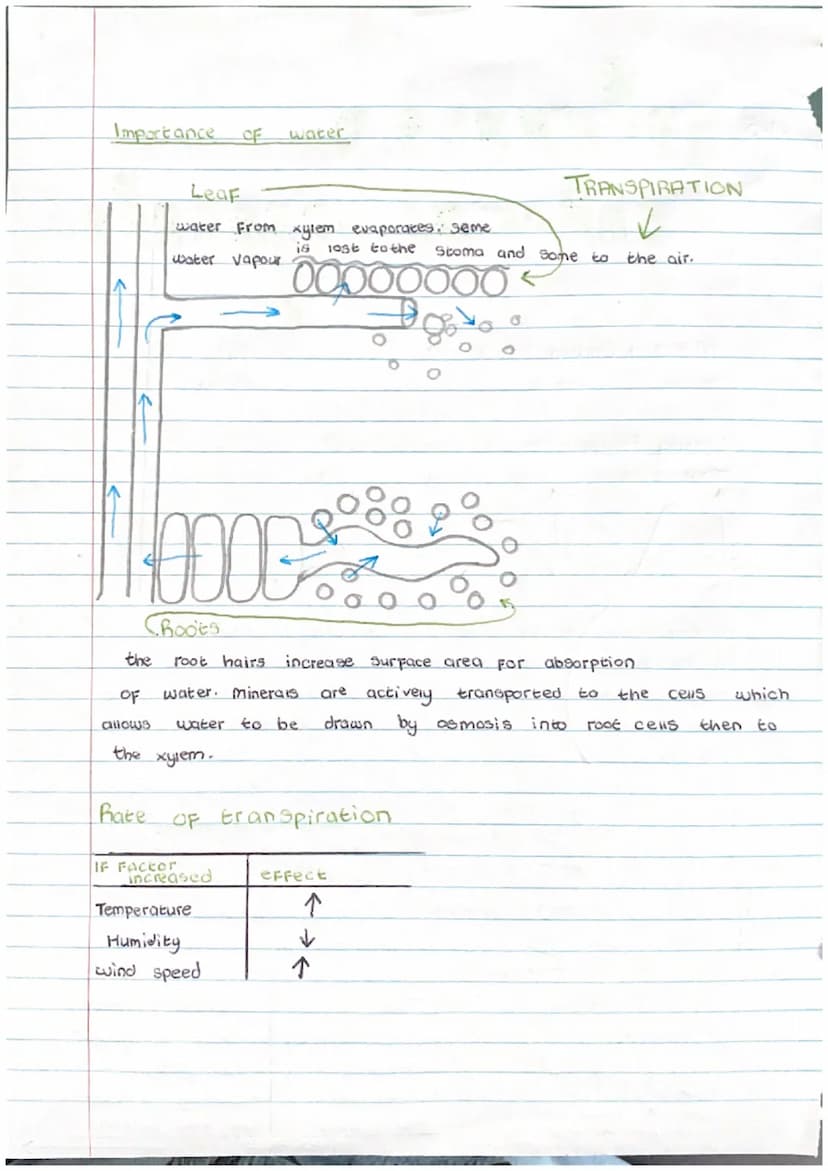 Importance of water
Leaf
TRANSPIRATION
water from xylem evaporates. Some
water vapour is lost to the stoma and some to the air.
Roots
the root hairs increase surface area for absorption
of water. Minerals are actively transported to the cells which
allows water to be drawn by osmosis into root cells then to
the xylem.
Rate of transpiration
If Factor increased effect
Temperature ↑
Humidity ↓
wind speed ↑